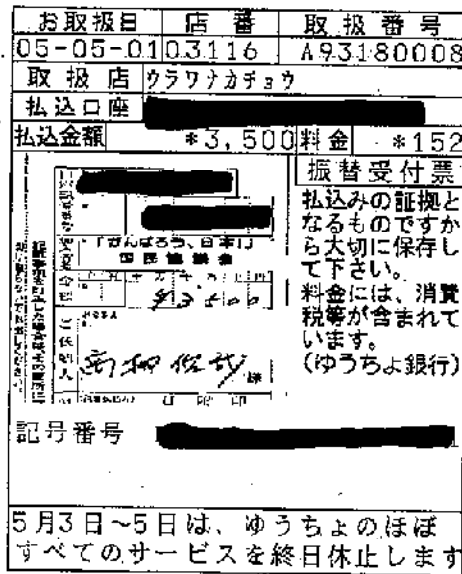 お取扱日 店番 取扱番号
05-05-01 03116 A93180008
取扱店 ウラワナカチョウ
払込口座
払込金額 *3,500 料金 *152
振替受付票
払込みの証拠と
なるものですか
ら大切に保存し
て下さい。
料金には、消費
税等が含まれて
います。
(ゆうちょ銀行)
「がんばろう、日本!」
国民協議会
ご依頼人
様
記号番号
5月3日~5日は、ゆうちょのほぼ
すべてのサービスを終日休止します